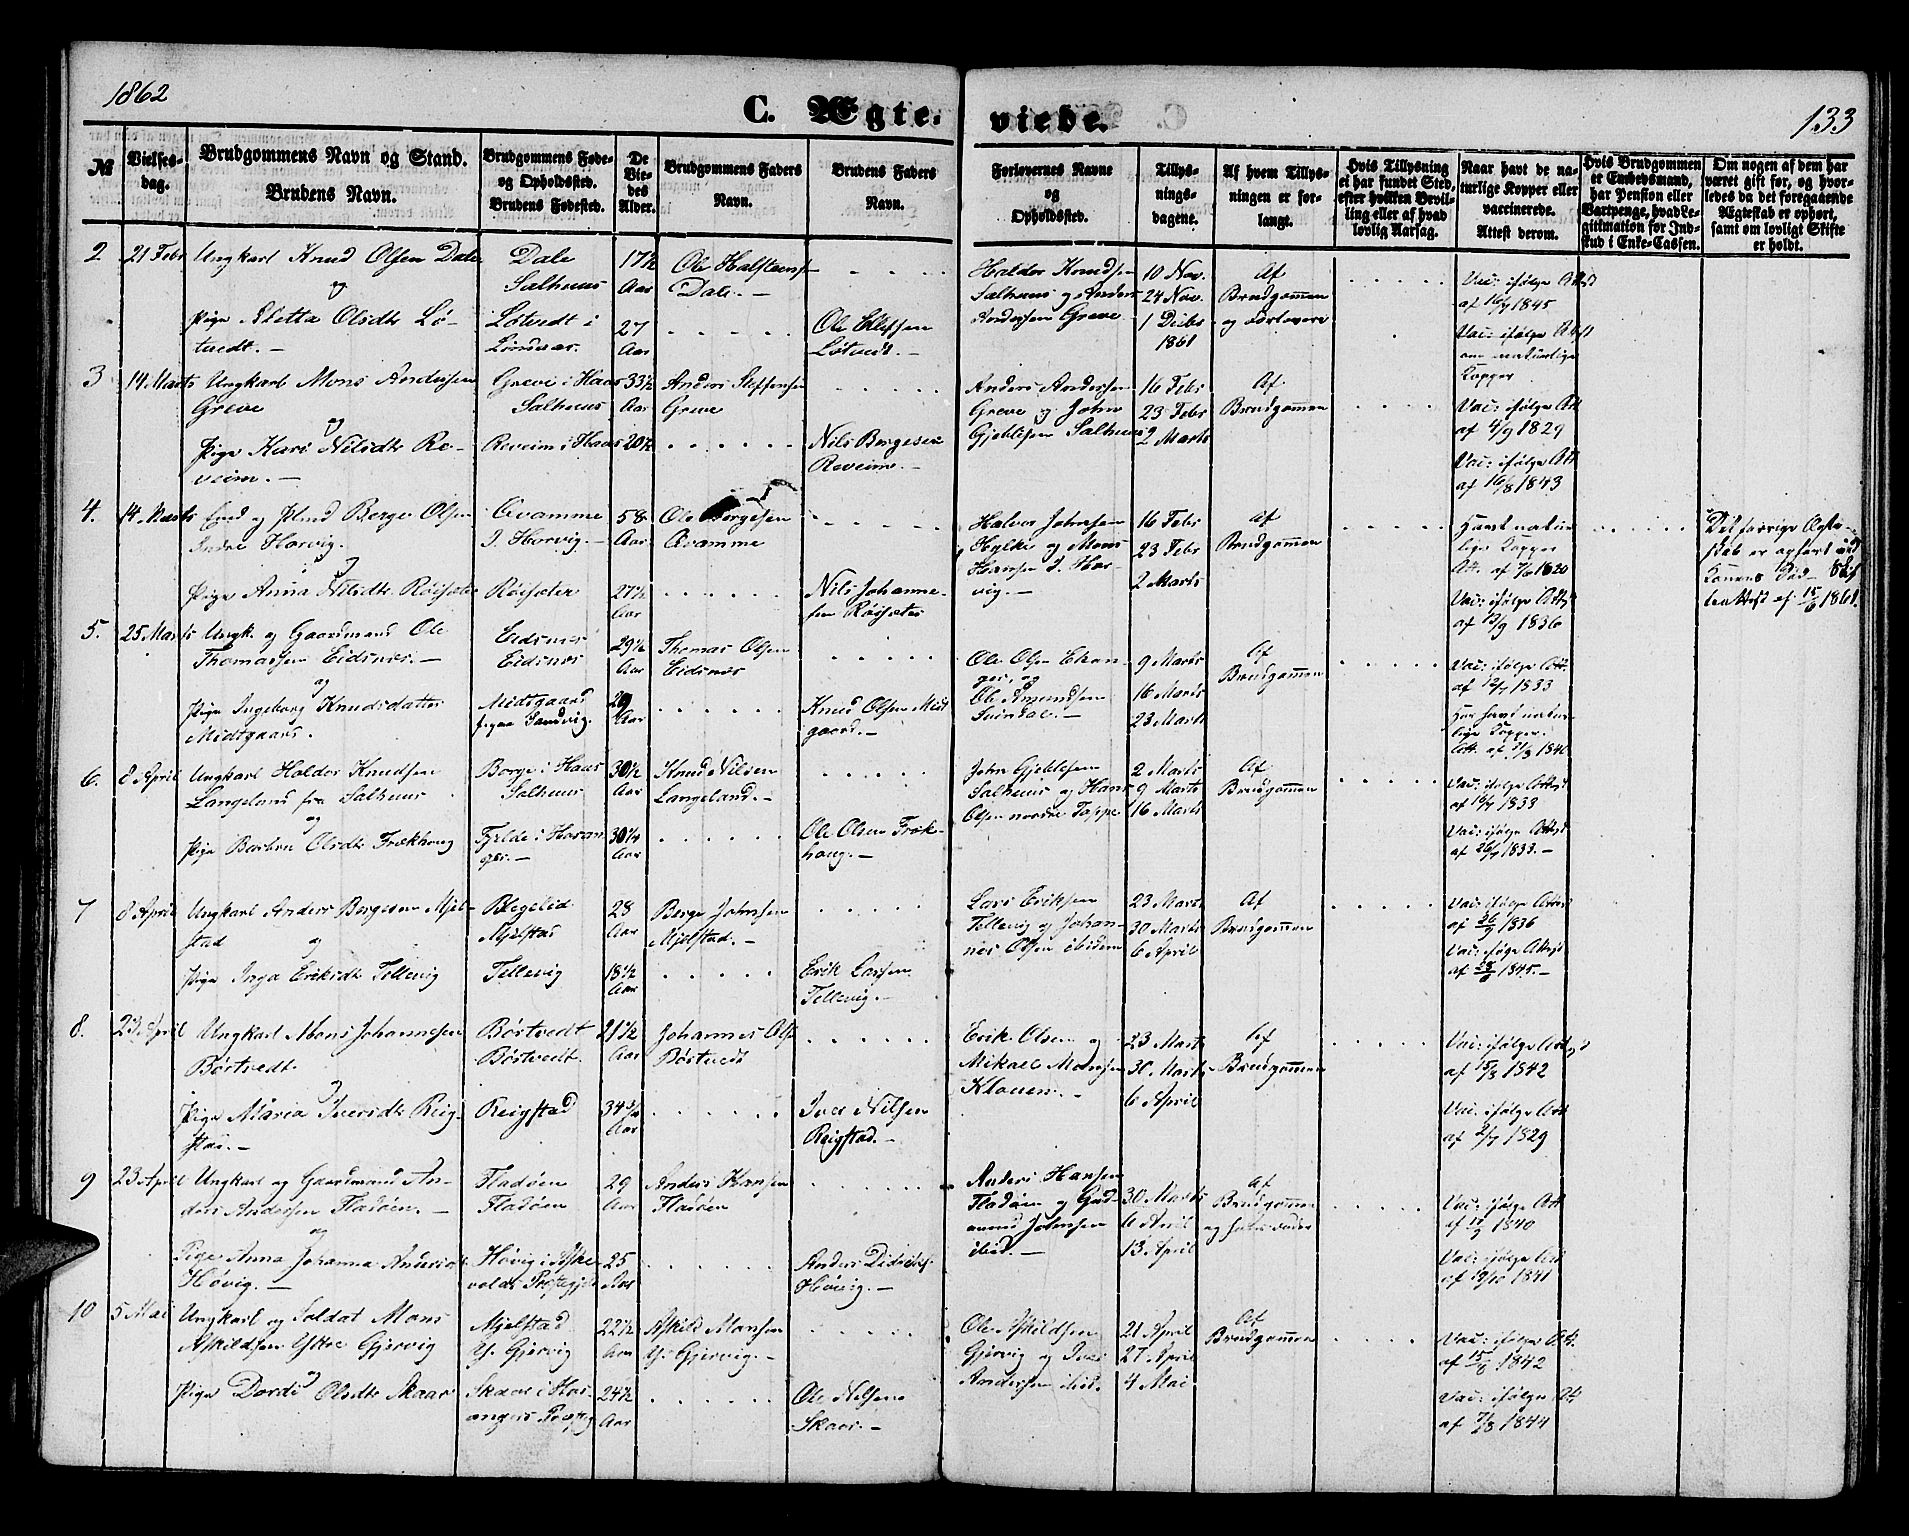 1862
C. Ægte-
viede.
133
№
Vielses-
dag.
Brudgommens Navn og Stand.
Brudens Navn.
Brudgommens Føde-
og Opholdssted.
Brudens Fødested.
De
Vie-
des
Alder.
Brudgommens Faders
Navn.
Brudens Faders
Navn.
Forlovernes Navne
og
Opholdssted.
Tillys-
nings-
dagene.
Af hvem Tillys-
ningen er for-
langt.
Hvis Tillysning
ei har fundet Sted,
efter hvilken Bevil-
ling eller af hvad
lovlig Aarsag.
Naar havt de na-
turlige Kopper eller
vaccinerede.
Attest derom.
Hvis Brudgommen
er Embedsmand,
har Pension eller
Vartpenge, hvad Le-
gitimation for Ind-
skud i Enke-Cassen.
Om nogen af dem har
været gift før, og hvor-
ledes da det foregaaende
Ægteskab er ophørt,
samt om lovligt Skifte
er holdt.
2
21 Febr
Ungkarl Knud Olsen Dale
og
Pige Sletta Olsdtr Lø-
tvedt. —
Dale
Salhuus
Løtvedt i
17½
Aar
27
Aar
Ole Halstens
Dale. —
Ole Ellefsen
Løtvedt. —
Haldor Knudsen
Salhuus og Anders
Andersen Greve
10 Nov.
24 Nov.
1 Decbr
1861
Af
Brudgommen
og Forlovere
Vac: ifølge Attest
af 16/9 1845
Vac: ifølge Attest
om naturlige
Kopper
3
14 Marts
Ungkarl Mons Andersen
Greve
og
Pige Kari Nilsdtr Re-
veim. —
Greve i Haus
Salhuus
Reveim i Haus
33½
Aar
20½
Anders Steffensen
Greve
Nils Borgesen
Reveim. —
Anders Andersen
Greve og John
Gjeblesen Salhuus
16 Febr
23 Febr
2 Marts
Af
Brudgommen
Vac: ifølge Att
af 4/9 1829
Vac: ifølge Att
af 16/8 1843
4.
14 Marts
Berge Olsen
Indre Horvig.
og
Pige Anna Nilsdtr Røisæter
Qvamme
I. Horvig. —
Røisæter
58
Aar
27½
Aar
Ole Borgesen
Qvamme
Nils Johanne-
sen Røisæter
Halvor Johnsen
Hylke og Mons
Hansen I. Hor-
vig. —
16 Febr
23 Febr
2 Marts
Af
Brudgommen
Havt natur
lige Kopper
Att. af 7/6 1820
Vac: ifølge Attest
af 13/9 1836
Det forrige Ægte-
skab er ophørt ved
Konens Død — Skif
teattest af 15/6 1861.
5.
25 Marts
Ungk. og Gaardmand Ole
Thomassen Eidsnes. —
og
Pige Ingeborg Knudsdatter
Midtgaard.
Eidsnes
Eidsnes
Midtgaard
29½
Aar
29
Aar
Thomas Olsen
Eidsnes
Knud Olsen Midt
gaard. —
Ole Olsen Ekan
ger, og
Ole Amundsen
9 Marts
16 Marts
23 Marts
Af
Brudgommen
Vac: ifølge Att.
af 12/7 1833
Har havt natur-
lige Kopper.
Att. af 7/3 1840
6.
8 April
Ungkarl Haldor Knudsen
Langeland fra Salhuus
og
Pige Barbra Olsdtr Frækhaug
Borge i Haus
Salhuus
Fjelde i Haran
ger. —
30½
Aar
30¼
Aar
Knud Nilsen
Langeland. —
Ole Olsen Fræk-
haug. —
John Gjeblesen
Salhuus og Hans
Olsen nordre Toppe
2 Marts
9 Marts
16 Marts
Af
Brudgommen
Vac: ifølge Attest
af 16/9 1833
Vac: ifølge Attest
af 26/7 1833. —
7
8 April
Ungkarl Anders Borgesen Mjel-
stad
og
Pige Inga Eriksdtr Tellevig
Blegelid
Mjelstad
Tellevig
28
Aar
18½
Aar
Berge Johnsen
Mjelstad. —
Erik Larsen
Tellevig. —
Lars Eriksen
Tellevig og Johan-
nes Olsen ibidem
23 Marts
30 Marts
6 April
Af
Brudgommen
Vac: ifølge Attest
af 26/9 1836
Vac: ifølge Attest
af 28/6 1845. —
8.
23 April
Ungkarl Mons Johannesen
Børtvedt.
og
Pige Maria Iversdtr Reig-
stad. —
Børtvedt
Børtvedt.
Reigstad
21½
Aar
34¾
Aar
Johannes Ols
Børtvedt
Iver Nilsen
Reigstad. —
Erik Olsen og
Mikael Monsen
Klauen. —
23 Marts
30 Marts
6 April
Af
Brudgommen
Vac: ifølge Attest
af 15/8 1842
Vac. ifølge Att
af 2/7 1829
9
23 April
Ungkarl og Gaardmand An-
ders Andersen Fladøen. —
og
Pige Anna Johanna Andersdtr
Høvig. —
Fladøen
Fladøen
Høvig i Aske
volds Præstegj
29
Aar
25
Aar
Anders Hansen
Fladøen
Anders Didriks.
Høvig. —
Anders Hansen
Fladøen og Gud-
mund Johnsen
ibid. —
30 Marts
6 April
13 April
Af
Brudgommen
Vac: ifølge Att
1840
Vac: ifølge Att
af 19/10 1841
10
5 Mai
Ungkarl og Soldat Mons
Askildsen Ystre Gjervig
og
Pige Dordi Olsdtr Skaar
Mjelstad
Y. Gjervig
Skaar i Ha-
angers Præsteg
22½
Aar
24½
Aar
Askild Monsen
Y. Gjervig. —
Ole Nilsen
Skaar. —
Ole Askildsen
Gjervig og Iver
Andersen ibid.
21 April
27 April
4 Mai
Af
Brudgommen
Vac: ifølge Att.
af 15/8 1842
Vac: ifølge Att
af 7/8 1844